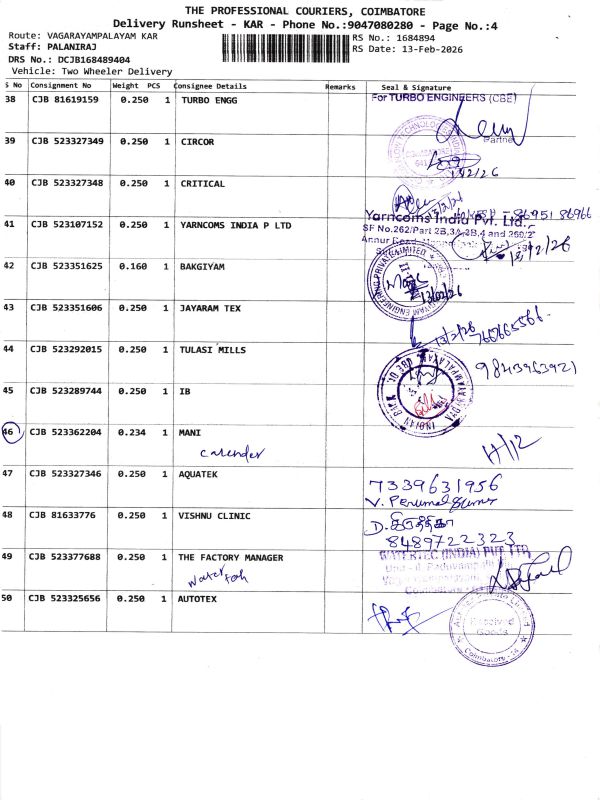 THE PROFESSIONAL COURIERS, COIMBATORE
Delivery Runsheet - KAR - Phone No.:9047080280 - Page No.:4
Route: VAGARAYAMPALAYAM KAR
RS No.: 1684894
Staff: PALANIRAJ
RS Date: 13-Feb-2026
DRS No.: DCJB168489404
Vehicle: Two Wheeler Delivery
S No Consignment No Weight PCS Consignee Details Remarks Seal & Signature
38 CJB 81619159 0.250 1 TURBO ENGG
For TURBO ENGINEERS (CBE)
Partner
39 CJB 523327349 0.250 1 CIRCOR
13/2/26
40 CJB 523327348 0.250 1 CRITICAL
13/2/26
41 CJB 523107152 0.250 1 YARNCOMS INDIA P LTD
Yarncoms India Pvt. Ltd.
86951 86966
SF No.262/Part 2B,3A,2B,4 and 260/2
Annur Road
13/2/26
42 CJB 523351625 0.160 1 BAKGIYAM
13/02/26
43 CJB 523351606 0.250 1 JAYARAM TEX
13/2/26
44 CJB 523292015 0.250 1 TULASI MILLS
9843963921
45 CJB 523289744 0.250 1 IB
INDIAN BANK
46 CJB 523362204 0.234 1 MANI
Calender
47 CJB 523327346 0.250 1 AQUATEK
7339631956
V. Perumal
48 CJB 81633776 0.250 1 VISHNU CLINIC
8489722323
49 CJB 523377688 0.250 1 THE FACTORY MANAGER
WATERTEC (INDIA) PVT LTD
Water
50 CJB 523325656 0.250 1 AUTOTEX
Received
Goods
Coimbatore